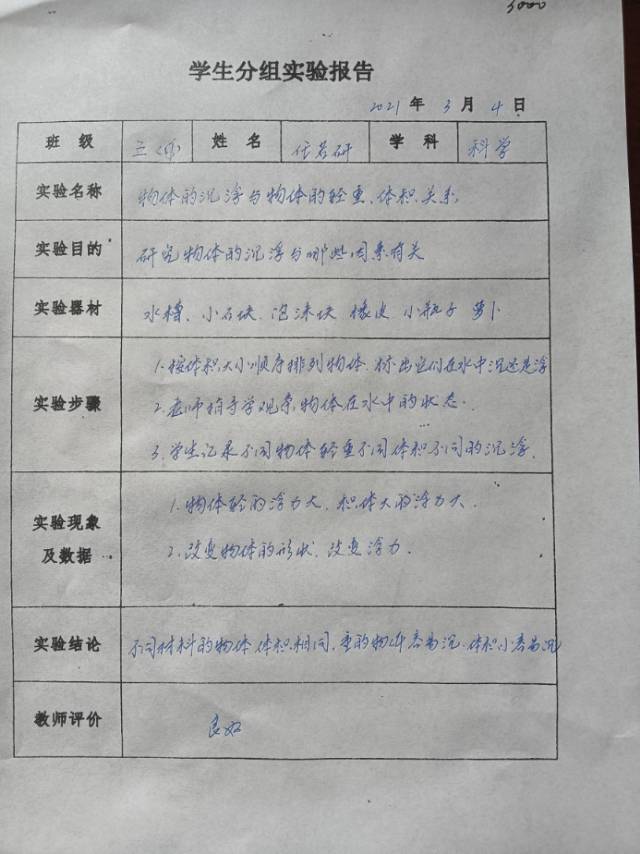 5000
学生分组实验报告
2021年3月4日
班级 三 姓名 任若研 学科 科学
实验名称 物体的沉浮与物体的轻重、体积关系
实验目的 研究物体的沉浮与哪些因素有关
实验器材 水槽、小石块、泡沫块 橡皮 小瓶子 萝卜
1.按体积大小顺序排列物体.标出它们在水中沉还是浮
实验步骤 2.老师指导学观察物体在水中的状态.
3.学生记录不同物体轻重不同体积不同的沉浮.
实验现象 1.物体轻的浮力大.积体大的浮力大.
及数据 2.改变物体的形状.改变浮力.
实验结论 不同材料的物体体积相同.重的物体容易沉.体积小容易沉
教师评价 良好